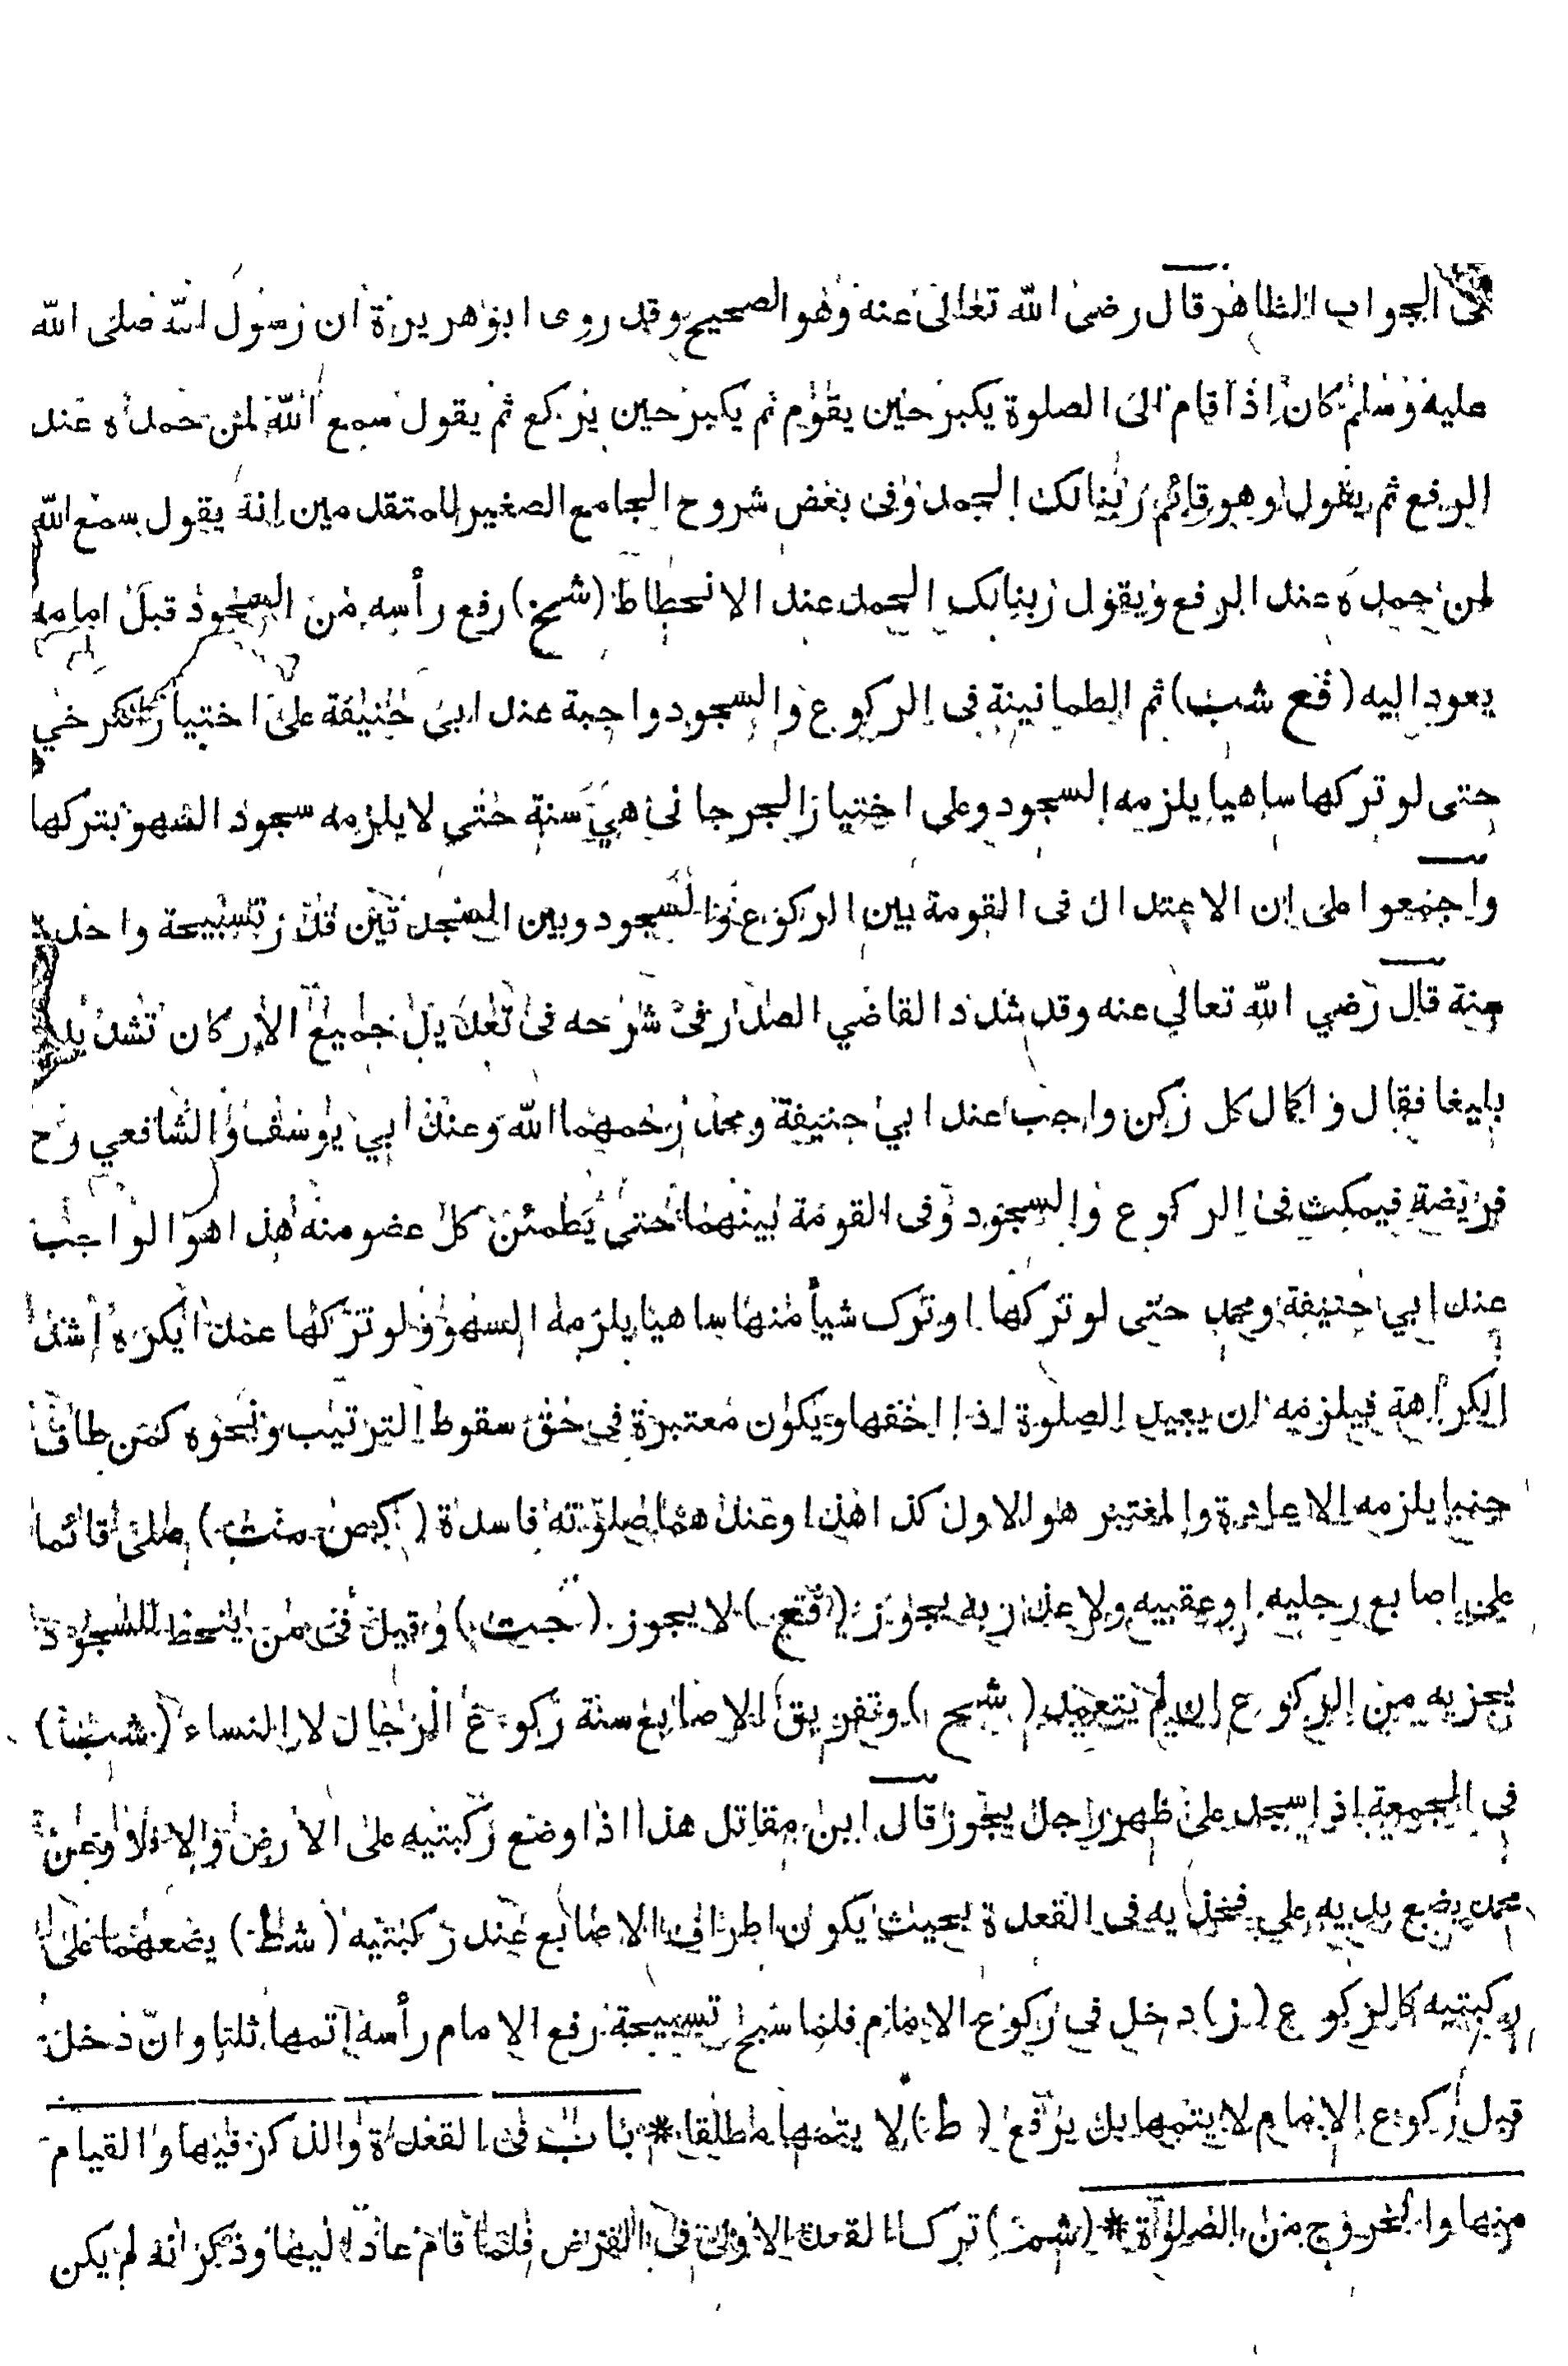 فى الجواب الظاهر قال رضى الله تعالى عنه وهو الصحيح وقد روى ابو هريرة ان رسول الله صلى الله
عليه وسلم كان اذا قام الى الصلوة يكبر حين يقوم ثم يكبر حين يركع ثم يقول سمع الله لمن حمده عند
الرفع ثم يقول وهو قائم ربنا لك الحمد وفى بعض شروح الجامع الصغير للمتقدمين انه يقول سمع الله
لمن حمده عند الرفع ويقول ربنا لك الحمد عند الانحطاط (شح) رفع رأسه من السجود قبل امامه
يعود اليه (قع شب) ثم الطمانينة فى الركوع والسجود واجبة عند ابى حنيفة على اختيار الكرخي
حتى لو تركها ساهيا يلزمه السجود وعلى اختيار الجرجانى هي سنة حتى لا يلزمه سجود السهو بتركها
واجمعوا على ان الاعتدال فى القومة بين الركوع والسجود وبين السجدتين قدر تسبيحة واحدة
سنة قال رضي الله تعالى عنه وقد شدد القاضي الصدر فى شرحه فى تعديل جميع الاركان تشديدا
بليغا فقال واكمال كل ركن واجب عند ابي حنيفة ومحمد رحمهما الله وعند ابي يوسف والشافعي رح
فريضة فيمكث فى الركوع والسجود وفى القومة بينهما حتى يطمئن كل عضو منه هذا هو الواجب
عند ابي حنيفة ومحمد حتى لو تركها او ترك شيأ منها ساهيا يلزمه السهو ولو تركها عمدا يكره اشد
الكراهة فيلزمه ان يعيد الصلوة اذا اخفها ويكون معتبرة في حق سقوط الترتيب ونحوه كمن طاف
جنبا يلزمه الاعادة والمعتبر هو الاول كذا هذا وعندهما صلوته فاسدة ( كص مث ) صلى قائما
على اصابع رجليه او عقبيه ولا عذر به يجوز (قع) لا يجوز ( جت ) وقيل فى من ينحط للسجود
يجزيه من الركوع ان لم يتعمد ( شح ) وتفريق الاصابع سنة ركوع الرجال لا النساء (شب)
في الجمعة اذا سجد على ظهر رجل يجوز قال ابن مقاتل هذا اذا وضع ركبتيه على الارض والا فلا وعن
محمد يضع يديه على فخذيه فى القعدة بحيث يكون اطراف الاصابع عند ركبتيه (شط) يضعهما على
ركبتيه كالركوع (ز) دخل في ركوع الامام فلما سبح تسبيحة رفع الامام رأسه اتمها ثلثا وان دخل
قبل ركوع الامام لا يتمها بل يرفع ( ط ) لا يتمها مطلقا * باب فى القعدة والذكر فيها والقيام
منها والخروج من الصلوة * (شم) ترك القعدة الاولى فى الفرض فلما قام عاد اليها وذكر انه لم يكن